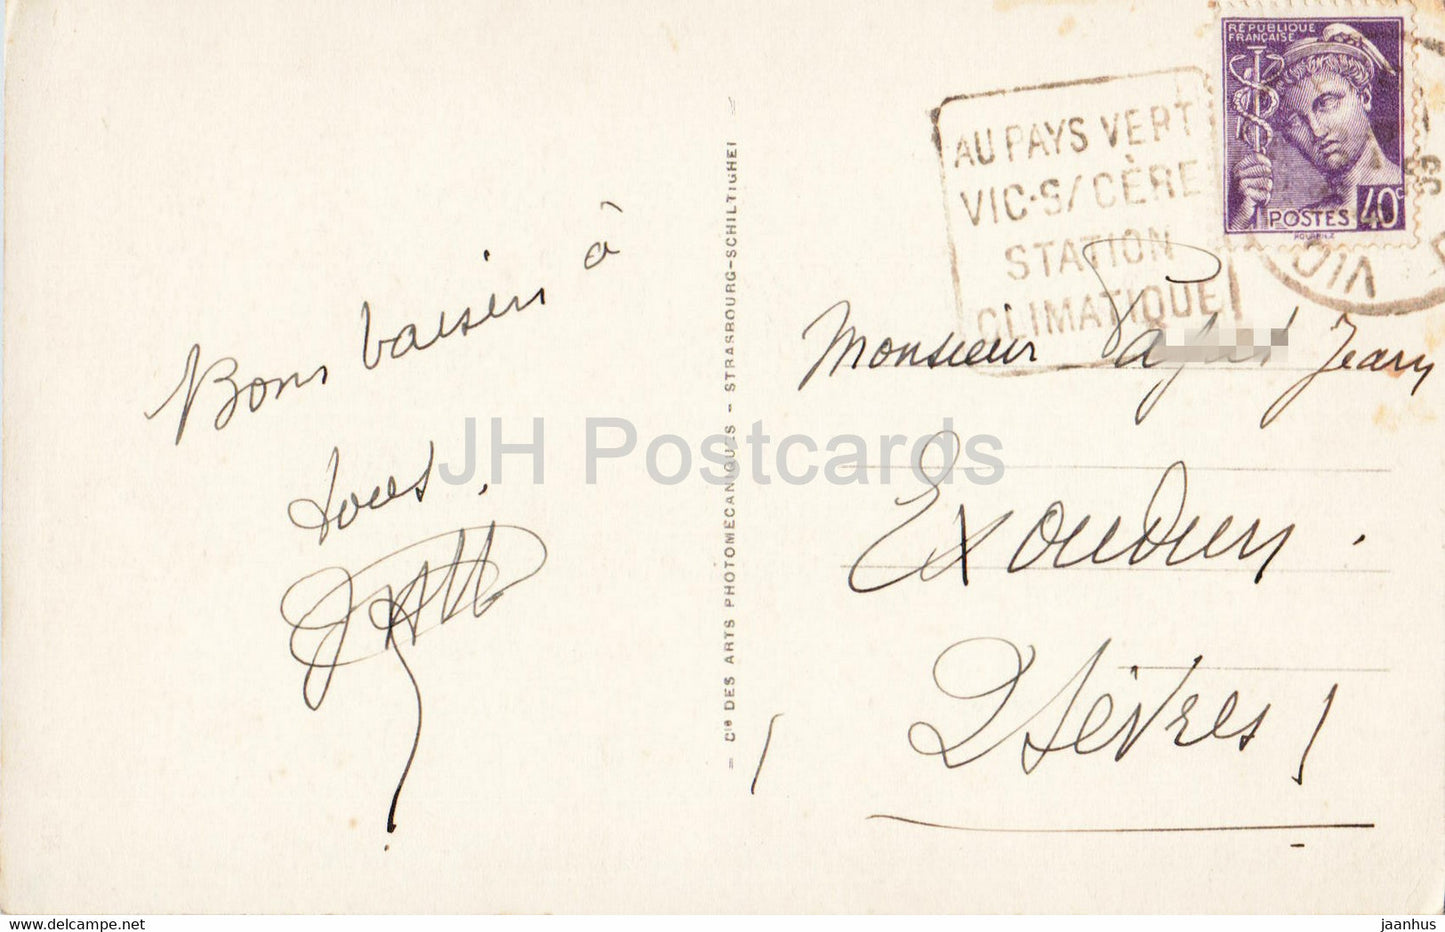 RÉPUBLIQUE
FRANÇAISE
POSTES 40c
AU PAYS VERT
VIC-S/CÈRE
STATION
CLIMATIQUE
VIC
39
Bons baisers à
tous.
Monsieur Jean
Exoudun.
2 Sèvres
= Cie DES ARTS PHOTOMÉCANIQUES - STRASBOURG-SCHILTIGHEI
JH Postcards
www.delcampe.net
jaanhus